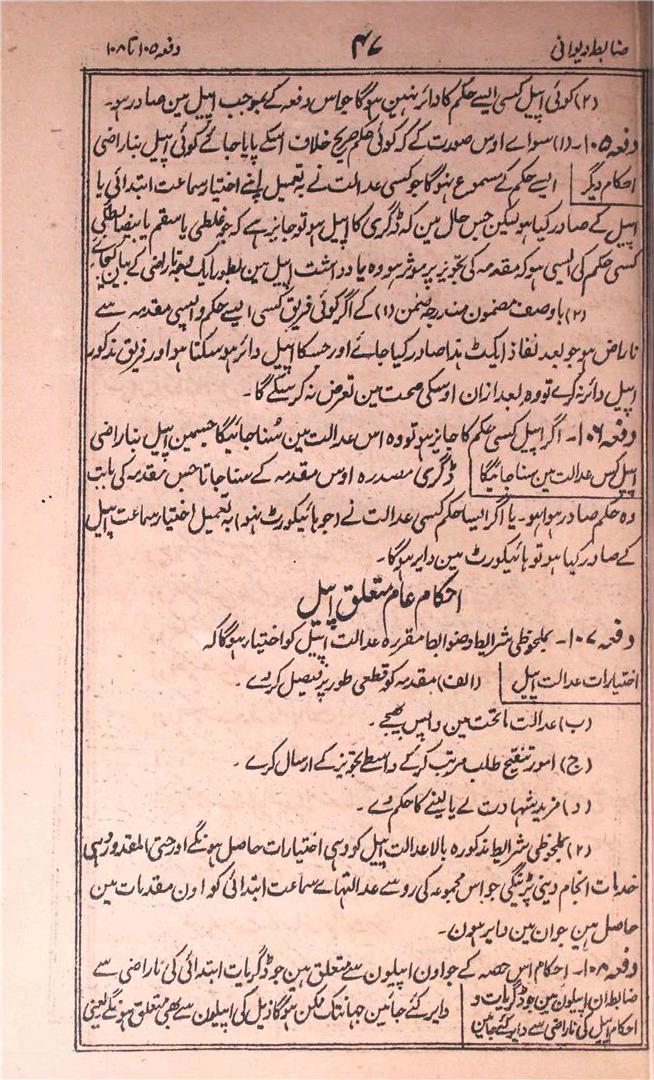 ضابطہ دیوانی ۴۷ دفعہ ۱۰۵ تا ۱۰۸
(۲) کوئی اپیل کسی ایسے حکم کا دائر نہین ہوگا جو اس دفعہ کے بموجب اپیل مین صادر ہو۔
دفعہ ۱۰۵۔ (۱) سواے اوس صورت کے کہ کوئی حکم صریح خلاف اسکے پایا جائے کوئی اپیل بناراضی
احکام دیگر ایسے حکم کے مسموع نہوگا جو کسی عدالت نے بہ تعمیل اپنے اختیار سماعت ابتدائی یا
اپیل کے صادر کیا ہو لیکن جس حال مین کہ ڈگری کا اپیل ہو تو جایز ہے کہ جو غلطی یا سقم یا بیضابطگی
کسی حکم کی ایسی ہو کہ مقدمہ کی تجویز پر موثر ہو وہ یادداشت اپیل مین بطور ایک وجہ ناراضی کے بیان کیجائے
(۲) باوصف مضمون مندرجہ ضمن (۱) کے اگر کوئی فریق کسی ایسے حکم واپسی مقدمہ سے
ناراض ہو جو بعد نفاذ ایکٹ ہذا صادر کیا جائے اور جسکا اپیل دائر ہو سکتا ہو اور فریق مذکور
اپیل دائر نہ کرے تو وہ بعد ازان اوسکی صحت مین تعرض نہ کر سکے گا۔
دفعہ ۱۰۶۔ اگر اپیل کسی حکم کا جایز ہو تو وہ اس عدالت مین سُنا جائیگا جسمین اپیل بناراضی
اپیل کس عدالت مین سنا جائیگا ڈگری مصدرہ اوس مقدمہ کے سنا جاتا جس مقدمہ کی بابت
وہ حکم صادر ہوا ہو۔ یا اگر ایسا حکم کسی عدالت نے (جو ہائیکورٹ نہو) بہ تعمیل اختیار سماعت اپیل
کے صادر کیا ہو تو ہائیکورٹ مین دایر ہوگا۔
احکام عام متعلق اپیل
دفعہ ۱۰۷۔ بملحوظی شرایط وضوابط مقررہ عدالت اپیل کو اختیار ہوگا کہ
اختیارات عدالت اپیل (الف) مقدمہ کو قطعی طور پر فیصل کر دے۔
(ب) عدالت ماتحت مین واپس بھیجے۔
(ج) امور تنقیح طلب مرتب کرکے واسطے تجویز کے ارسال کرے۔
(د) مزید شہادت لے یا لینے کا حکم دے۔
(۲) بملحوظی شرایط مذکورہ بالا عدالت اپیل کو وہی اختیارات حاصل ہونگے اور حتی المقدور وہی
خدمات انجام دینی پڑینگی جو اس مجموعہ کی رو سے عدالتہاے سماعت ابتدائی کو اون مقدمات مین
حاصل ہین جو ان مین دایر ہون۔
دفعہ ۱۰۸۔ احکام اس حصہ کے جو اون اپیلون سے متعلق ہین جو ڈگریات ابتدائی کی ناراضی سے
ضابطہ ان اپیلون مین جو ڈگریات و دایر کئے جائین جہانتک ممکن ہوگا ذیل کی اپیلون سے بھی متعلق ہونگے یعنی
احکام اپیل کی ناراضی سے دایر کئے جائین